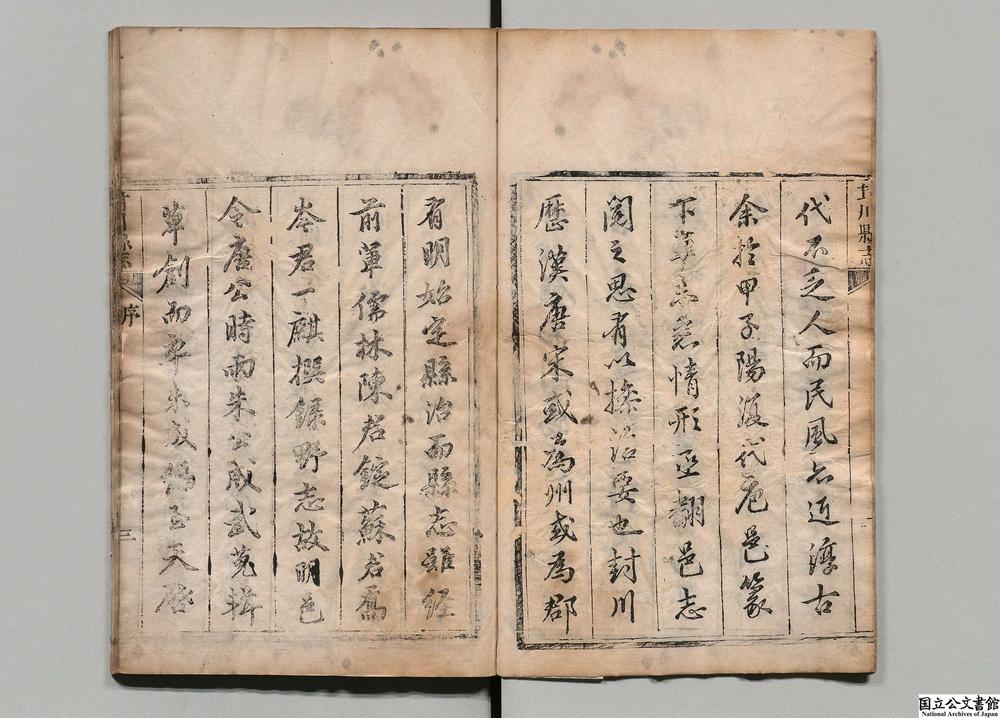 封川縣志
代不乏人而民風亦近淳古
余於甲子陽復代庖邑篆
下車未悉情形亟翻邑志
閱之思有以擦治要也封川
歷漢唐宋或為州或為郡
有明始定縣治而縣志雖經
前軰儒林陳君錠蘇君喬
岑君一麒撰錄野志故明邑
令唐公時雨朱公成武蒐輯
草創而率未成編至天啓
序
三
国立公文書館
National Archives of Japan